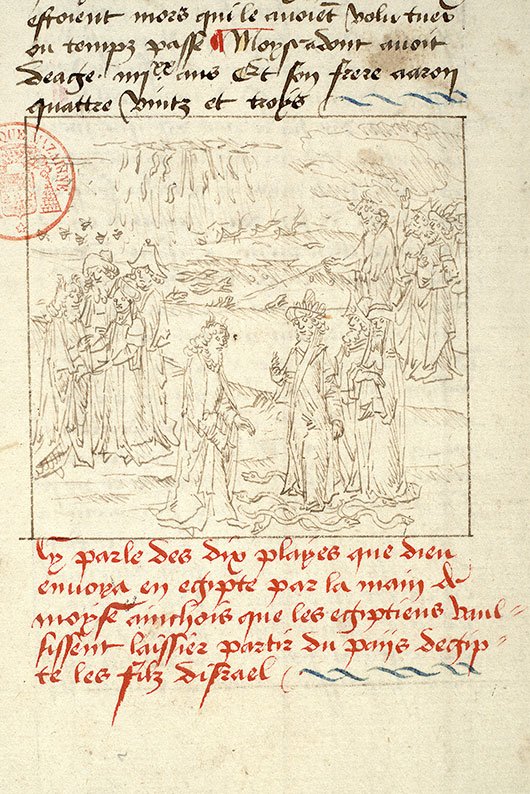 estoient mors qui le avoient volu tuer
ou temps passe Moyse adont avoit
deage. iiii xx ans Et son frere aaron
quattre vintz et troys
QUE MAZARINE
Cy parle des dix playes que dieu
envoya en egipte par la main de
moyse ainchois que les egiptiens vaul-
sissent laissier partir du pays degip-
te les filz disrael